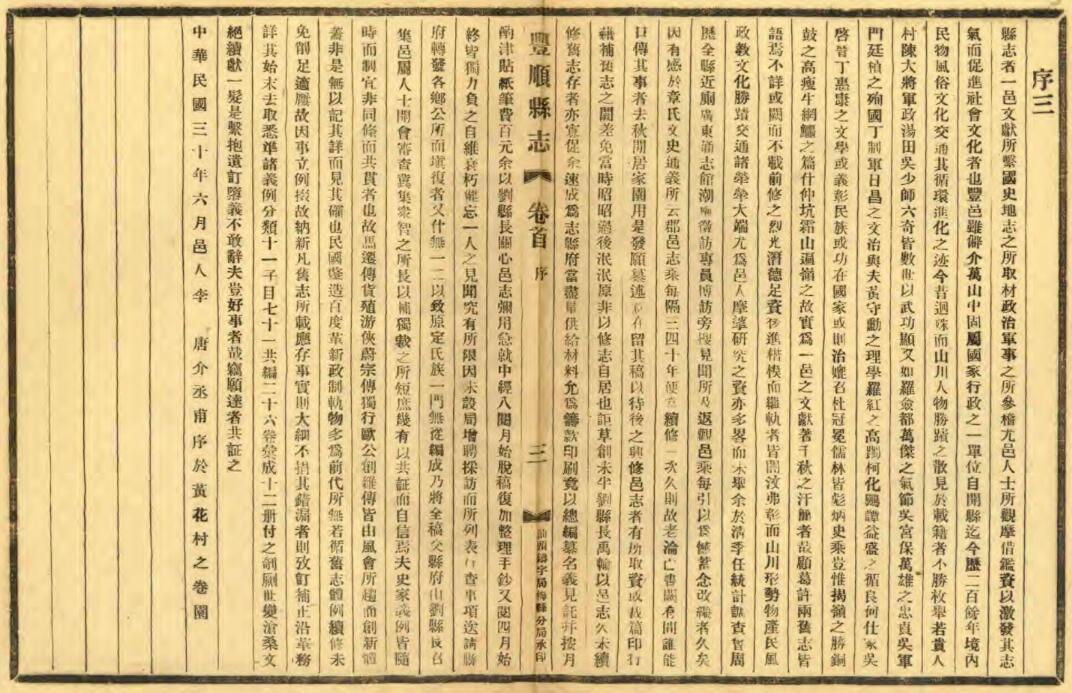 序三
縣志者一邑文獻所繫國史地志之所取材政治軍事之所參稽尤邑人士所觀摩借鑑資以激發其志
氣而促進社會文化者也豐邑雖僻介萬山中固屬國家行政之一單位自開縣迄今歷二百餘年境內
民物風俗文化交通其循環進化之迹今昔迥殊而山川人物勝蹟之散見於載籍者不勝枚舉若貴人
村陳大將軍政湯田吳少師六奇皆數世以武功顯又如羅僉都萬傑之氣節吳宮保萬雄之忠貞吳軍
門廷楨之殉國丁制軍日昌之文治與夫黃守勳之理學羅紅之高躅柯化鵬譚益盛之循良何仕冢吳
啓晉丁惠康之文學或義彰民族或功在國家或則治媲召杜冠冕儒林皆彪炳史乘豈惟揭嶺之勝銅
鼓之高瘦牛網鱷之篇什仲坑霜山逼嶺之故實爲一邑之文獻著千秋之汗簡者哉顧葛許兩舊志皆
語焉不詳或闕而不載前修之烈光潛德足資後進楷模而繼軌者皆闇汶弗彰而山川形勢物產民風
政教文化勝蹟交通諸犖犖大端尤爲邑人摩挲研究之資亦多畧而未舉余於清季任統計調查暫周
歷全縣近廁廣東通志館潮 徵訪專員博訪旁搜見聞所及返觀邑乘每引以爲憾蓄念改纂者久矣
因有感於章氏文史通義所云郡邑志乘每隔三四十年便宜續修一次久則故老淪亡書闕有間誰能
口傳其事者去秋閒居家園用是發願纂述 在留其稿以待後之興修邑志者有所取資或裁篇印行
藉補舊志之闕差免當時昭昭過後泯泯原非以修志自居也詎草創未半劉縣長禹輪以邑志久未續
修舊志存者亦寥促余速成爲志縣府當盡量供給材料允爲籌款印刷竟以總編纂名義見託幷按月
豐順縣志 卷首 序 三 汕頭鑄字局梅縣分局承印
酌津貼紙筆費百元余以劉縣長關心邑志彌用急就中經八閱月始脫稿復加整理手鈔又閱四月始
終皆獨力負之自維衰朽健忘一人之見聞究有所限因未設局增聘採訪而所列表行查事項送請縣
府轉發各鄉公所而塡復者又什無一二以致原定氏族一門無從編成乃將全稿交縣府由劉縣長召
集邑屬人士開會審查冀集衆智之所長以補獨載之所短庶幾有以共証而自信焉夫史家義例皆隨
時而制宜非同條而共貫者也故馬遷傳貨殖游俠蔚宗傳獨行歐公創雜傳皆由風會所趨而創新體
叢非是無以記其詳而見其確也民國肇造百度革新政制軌物多爲前代所無若循舊志體例續修未
免削足適屨故因事立例掇故納新凡舊志所載應存事實則大綱不捐其錯漏者則攷訂補正沿革務
詳其始末去取悉準諸義例分類十一子目七十一共編二十六卷彙成十二册付之剞劂世變滄桑文
絕續獻一髮是繫抱遺訂墜義不敢辭夫豈好事者哉竊願達者共証之
中華民國三十年六月邑人李 唐介丞甫序於黃花村之卷園